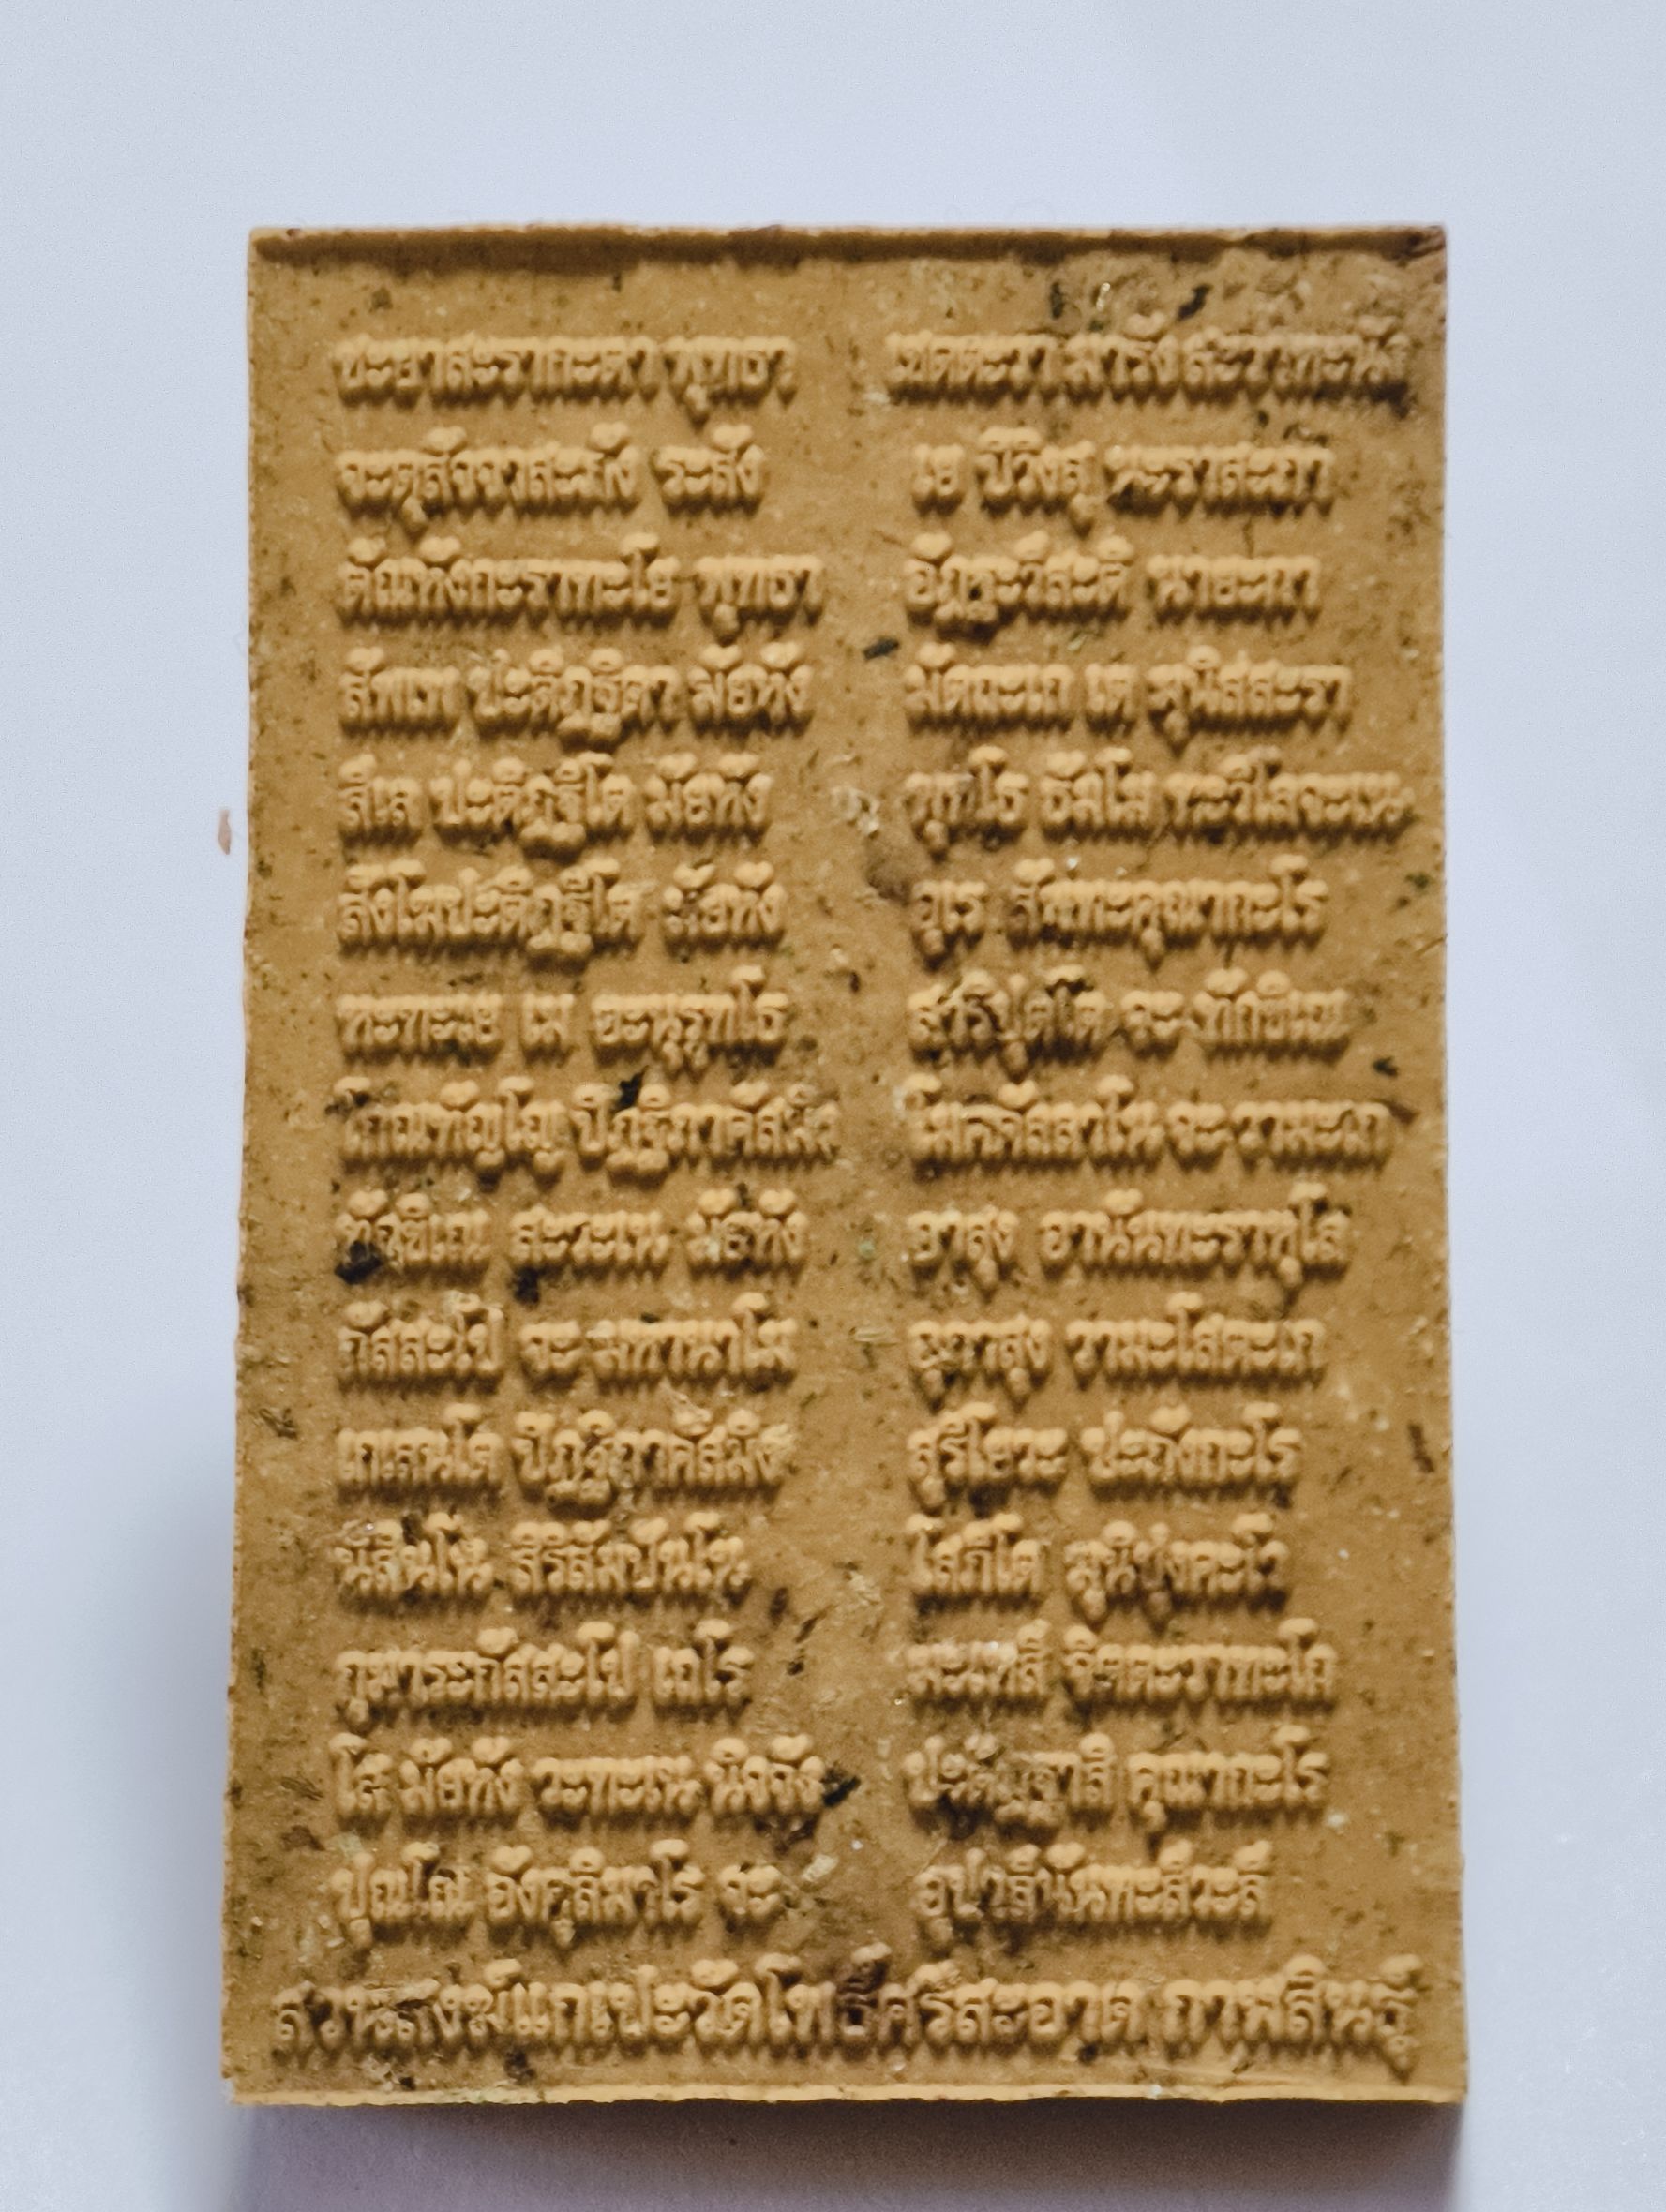 ชะยาสะรากะตา พุทธา เชตตะวา มารัง สะวาหะนัง
จะตุสัจจาสะภัง ระสัง เย ปิวิงสุ นะราสะภา
ตัณหังกะราทะโย พุทธา อัฏฐะวีสะติ นายะกา
สัพเพ ปะติฏฐิตา มัยหัง มัตถะเก เต มุนิสสะรา
สีเส ปะติฏฐิโต มัยหัง พุทโธ ธัมโม ทะวิโลจะเน
สังโฆปะติฏฐิโต มัยหัง อุเร สัพพะคุณากะโร
หะทะเย เม อะนุรุทโธ สารีปุตโต จะ ทักขิเณ
โกณทัญโญ ปิฏฐิภาคัสมิง โมคคัลลาโน จะ วามะเก
ทักขิเณ สะวะเน มัยหัง อาสุง อานันทะราหุโล
กัสสะโป จะ มหานาโม อุภาสุง วามะโสตะเก
เกเสนโต ปิฏฐิภาคัสมิง สุริโยวะ ปะภังกะโร
นิสินโน สิริสัมปันโน โสภิโต มุนิปุงคะโว
กุมาระกัสสะโป เถโร มะเหสี จิตตะวาทะโก
โส มัยหัง วะทะเน นิจจัง ปะติฏฐาสิ คุณากะโร
ปุณโณ อังคุลิมาโร จะ อุปาลีนันทะสีวะลี
สวนสงฆ์แกเปะวัดโพธิ์ศรีสะอาด กาฬสินธุ์